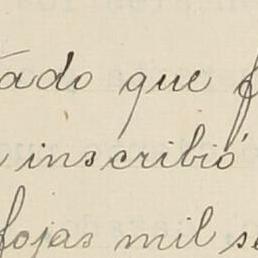 tado que f
inscribió
fojas mil se